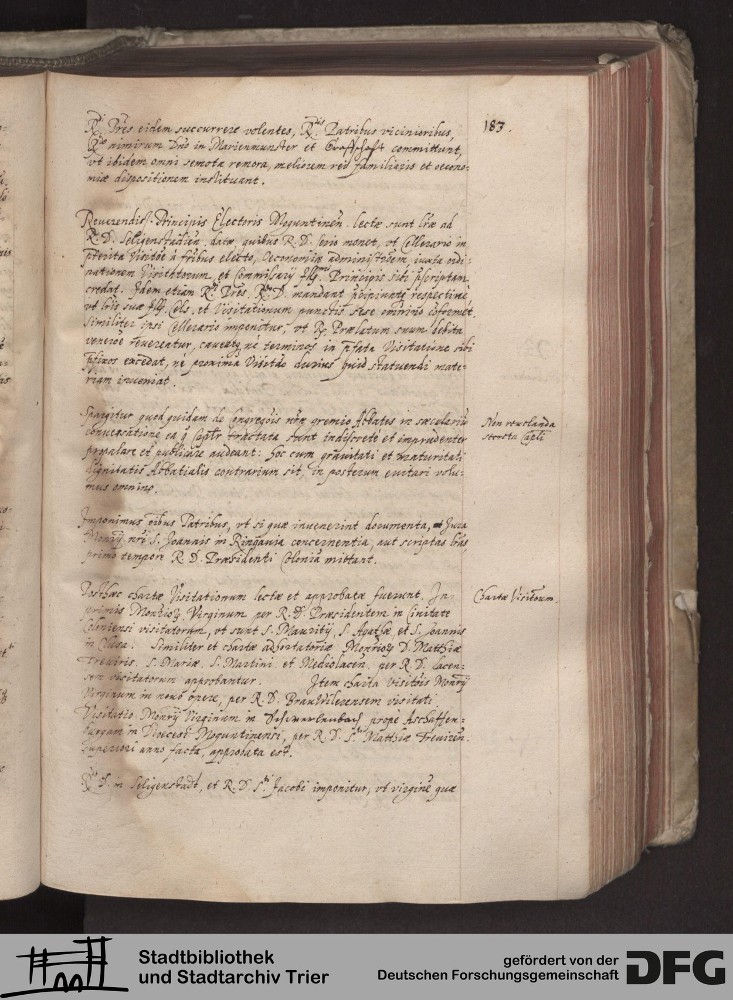 187.
R.di P̃res eidem succurrere volentes, R.dis Patribus vicinioribus,
R.dis nimirum Dño in Marienmunster et Graffschafft committunt,
vt ibidem omni semota remora, meliorem rei familiaris et oecono-
miæ dispositionem instituant.
Reuerendiss. Principis Electoris Moguntinen. lectæ sunt l̃ræ ad
R. D. Seligenstadien. datæ, quibus R. D. serio monet, vt Cellerario in
p̃terita Visit̃õe à fribus electo, Oeconomiæ administr̃õem, iuxta ordi-
nationem Visitatorum, et Commissarij Principis sibi p̃scriptam
credat. Idem etiam R.di P̃res R. D. mandant respectiue,
vt l̃ris suæ Cels. et Visitationum punctis sese omnino cõformet.
Similiter ipsi Cellerario imponitur, vt R. Prælatum suum debita
reuereatur, caueatq; ne terminos in p̃fata Visitatione sibi
p̃fixos excedat, ne proxima Visit̃ão durius quid statuendi mate-
riam inueniat.
Spargitur quod quidam de Congreg̃õis nr̃æ gremio Abbates in sæcularium
conuersatione ea q̃ Cap̃lr tractata sunt indiscrete et imprudenter
propalare et publicare audeant: hoc cum grauitati et maturitati
dignitatis Abbatialis contrarium sit, in posterum euitari volu-
mus omnino.
Non reuelanda
secreta Cap̃li
Imponimus õibus Patribus, vt si quæ inuenerint documenta, Iura
Monrij nr̃i S. Joannis in Ringauia concernentia, aut scriptas l̃ras
primo tempore R. D. Præsidenti Coloniã mittant.
Posthæc chartæ Visitationum lectæ et approbatæ fuerunt. In-
primis Monrioȝ Virginum per R. D. Præsidentem in Ciuitate
Coloniensi visitatorum, vt sunt S. Mauritij, S. Agathæ, et S. Joannis
in Similiter et chartæ adhortatoriæ Monrioȝ D. Matthiæ
Treuiris. S. Mariæ. S. Martini et Mediolacen. per R. D. Lacen-
sem visitatorum approbantur. Item charta visit̃õis Monrij
Virginum in nouo opere, per R. D. Brauwilerensem visitati.
Visitatio Monrij Virginum in Schmerlenbach prope Aschaffen-
burgam in Dioecesi Moguntinensi, per R. D. S.ti Matthiæ Treuiren.
superiori anno facta, approbata est.
Chartæ Visit̃onum
R.dis D. in Seligenstadt, et R. D. S.ti Jacobi imponitur, vt virginẽ quæ
Stadtbibliothek
und Stadtarchiv Trier
gefördert von der
Deutschen Forschungsgemeinschaft
DFG